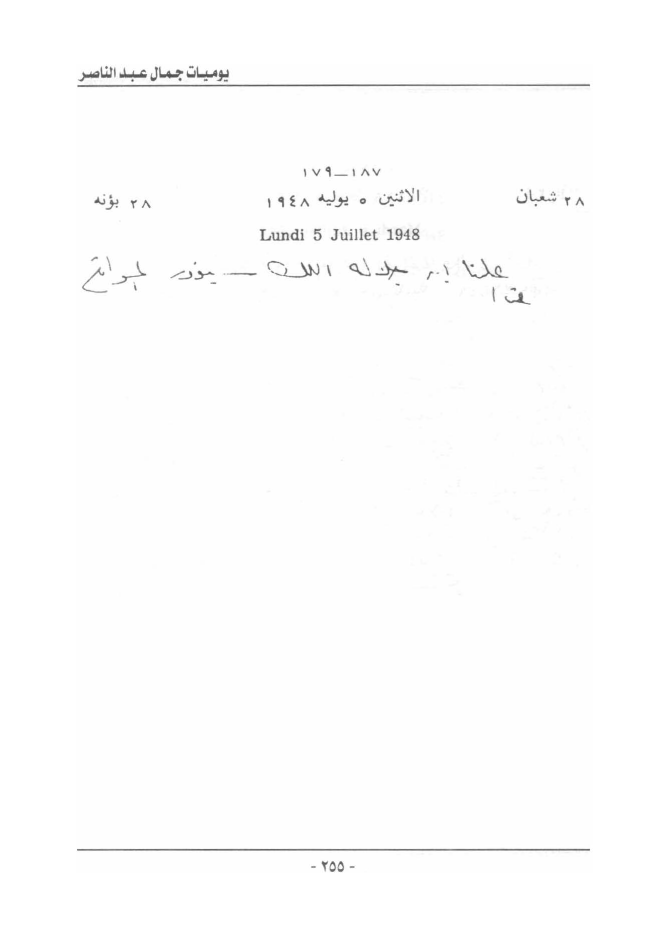 يوميات جمال عبد الناصر
١٨٧—١٧٩
٢٨ شعبان الاثنين ٥ يوليه ١٩٤٨ ٢٨ بؤنه
Lundi 5 Juillet 1948
علمنا ان جلاله الملك — يزور المواقع
غدا
- ٢٥٥ -